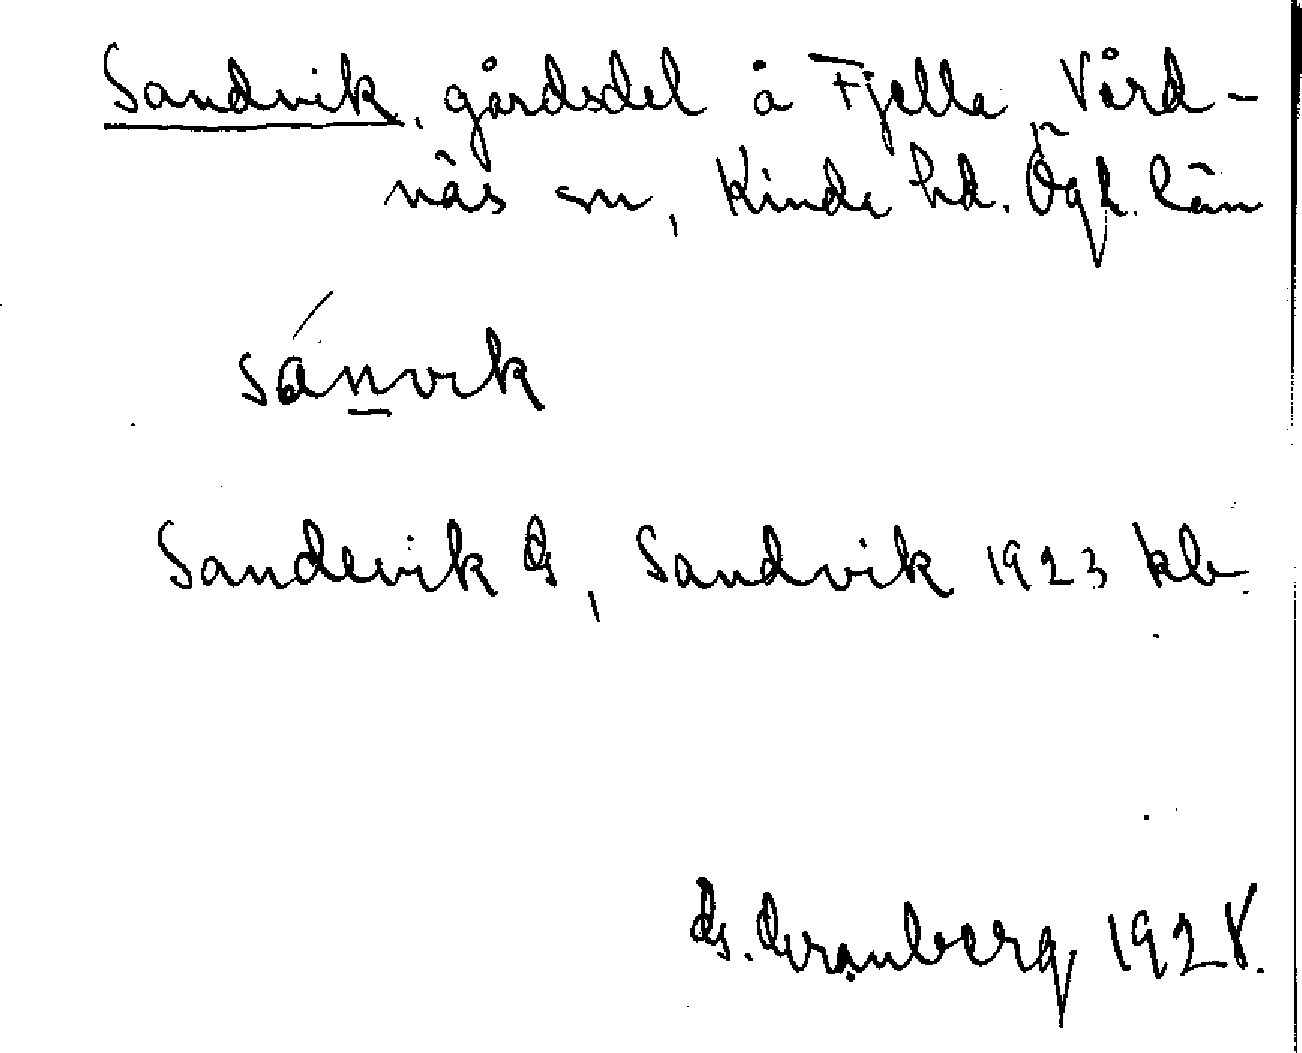 Sandvik, gårdsdel å Fjella Vård-
näs sn, Kinda hd. Ögl. län
sánvik
Sandevik G, Sandvik 1923 kb.
G. Granberg 1928.